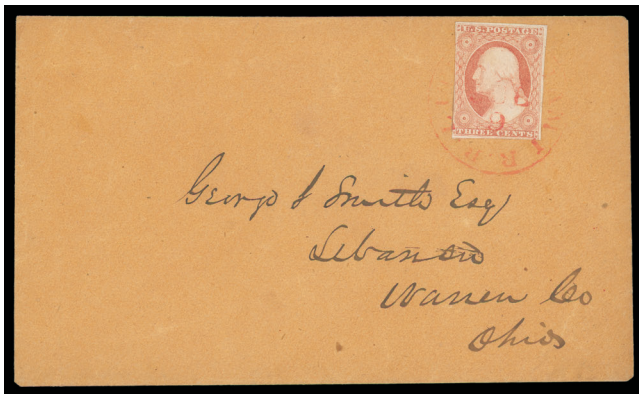 U.S. POSTAGE
THREE CENTS
R.R.
George S Smith Esq
Lebanon
Warren Co
Ohio